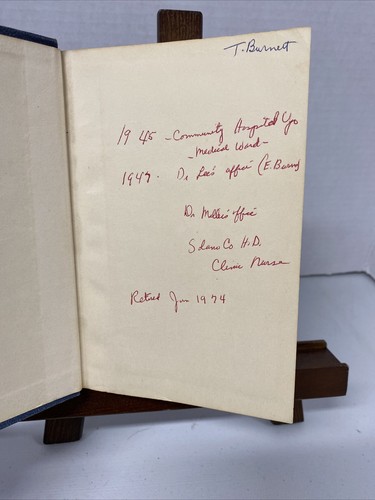 T. Burnett
1945 - Community Hospital
- Medical Ward -
1947. Dr Lee's office (E.
Dr Miller's office
Solano Co H.D.
Clinic Nurse
Retired Jun 1974